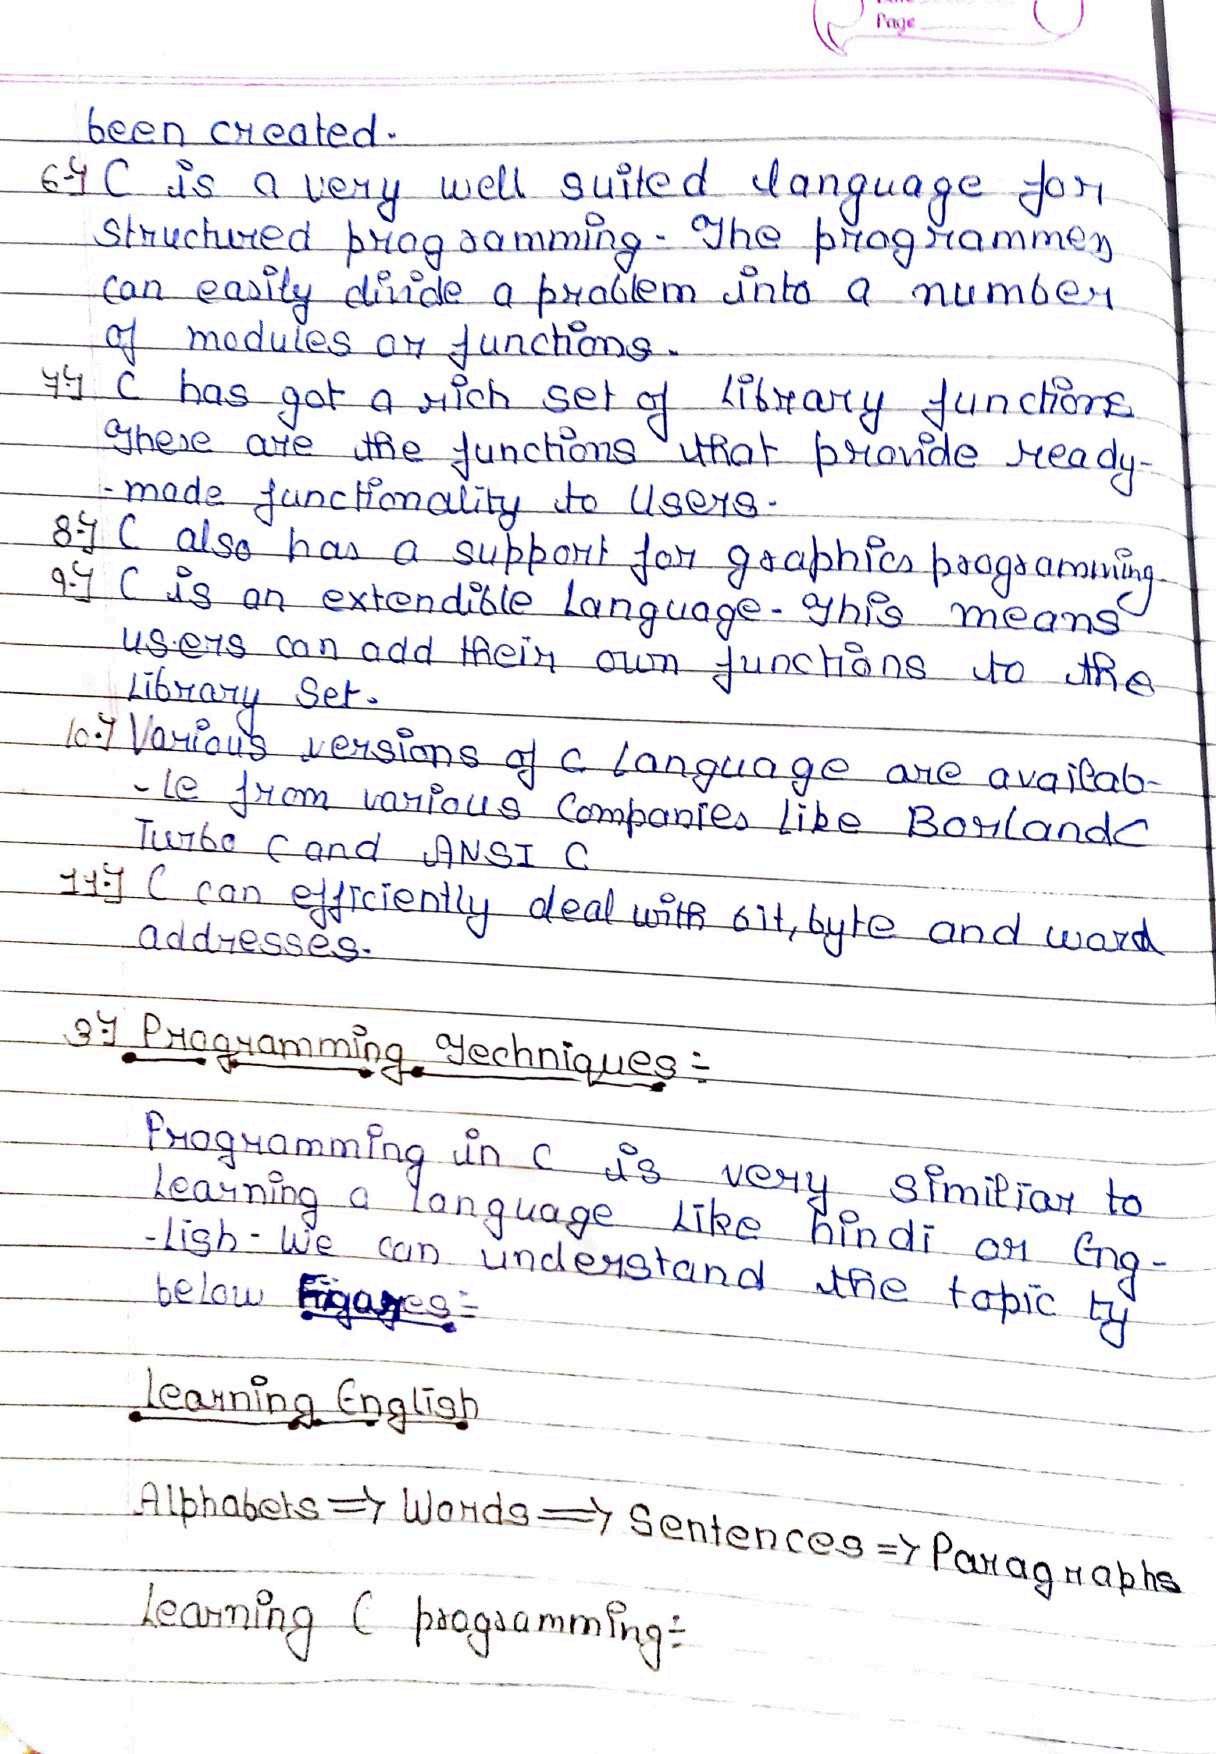 Page
been created.
6.) C is a very well suited language for
structured programming. The programmer
can easily divide a problem into a number
of modules or functions.
7.) C has got a rich set of library functions
These are the functions that provide ready-
-made functionality to users.
8.) C also has a support for graphics programming.
9.) C is an extendible language. This means
users can add their own functions to the
library set.
10.) Various versions of C language are availab-
-le from various companies like Borland C
Turbo C and ANSI C
11.) C can efficiently deal with bit, byte and word
addresses.
3.) Programming Techniques:-
Programming in C is very similiar to
learning a language like hindi or Eng-
-lish. We can understand the topic by
below Figares:-
Learning English
Alphabets => Words => Sentences => Paragraphs
Learning C programming:-